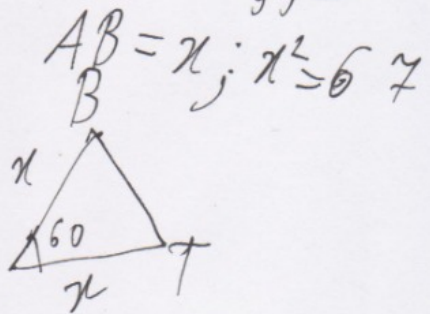 AB = x; x² = 67
B
x
60
T
x